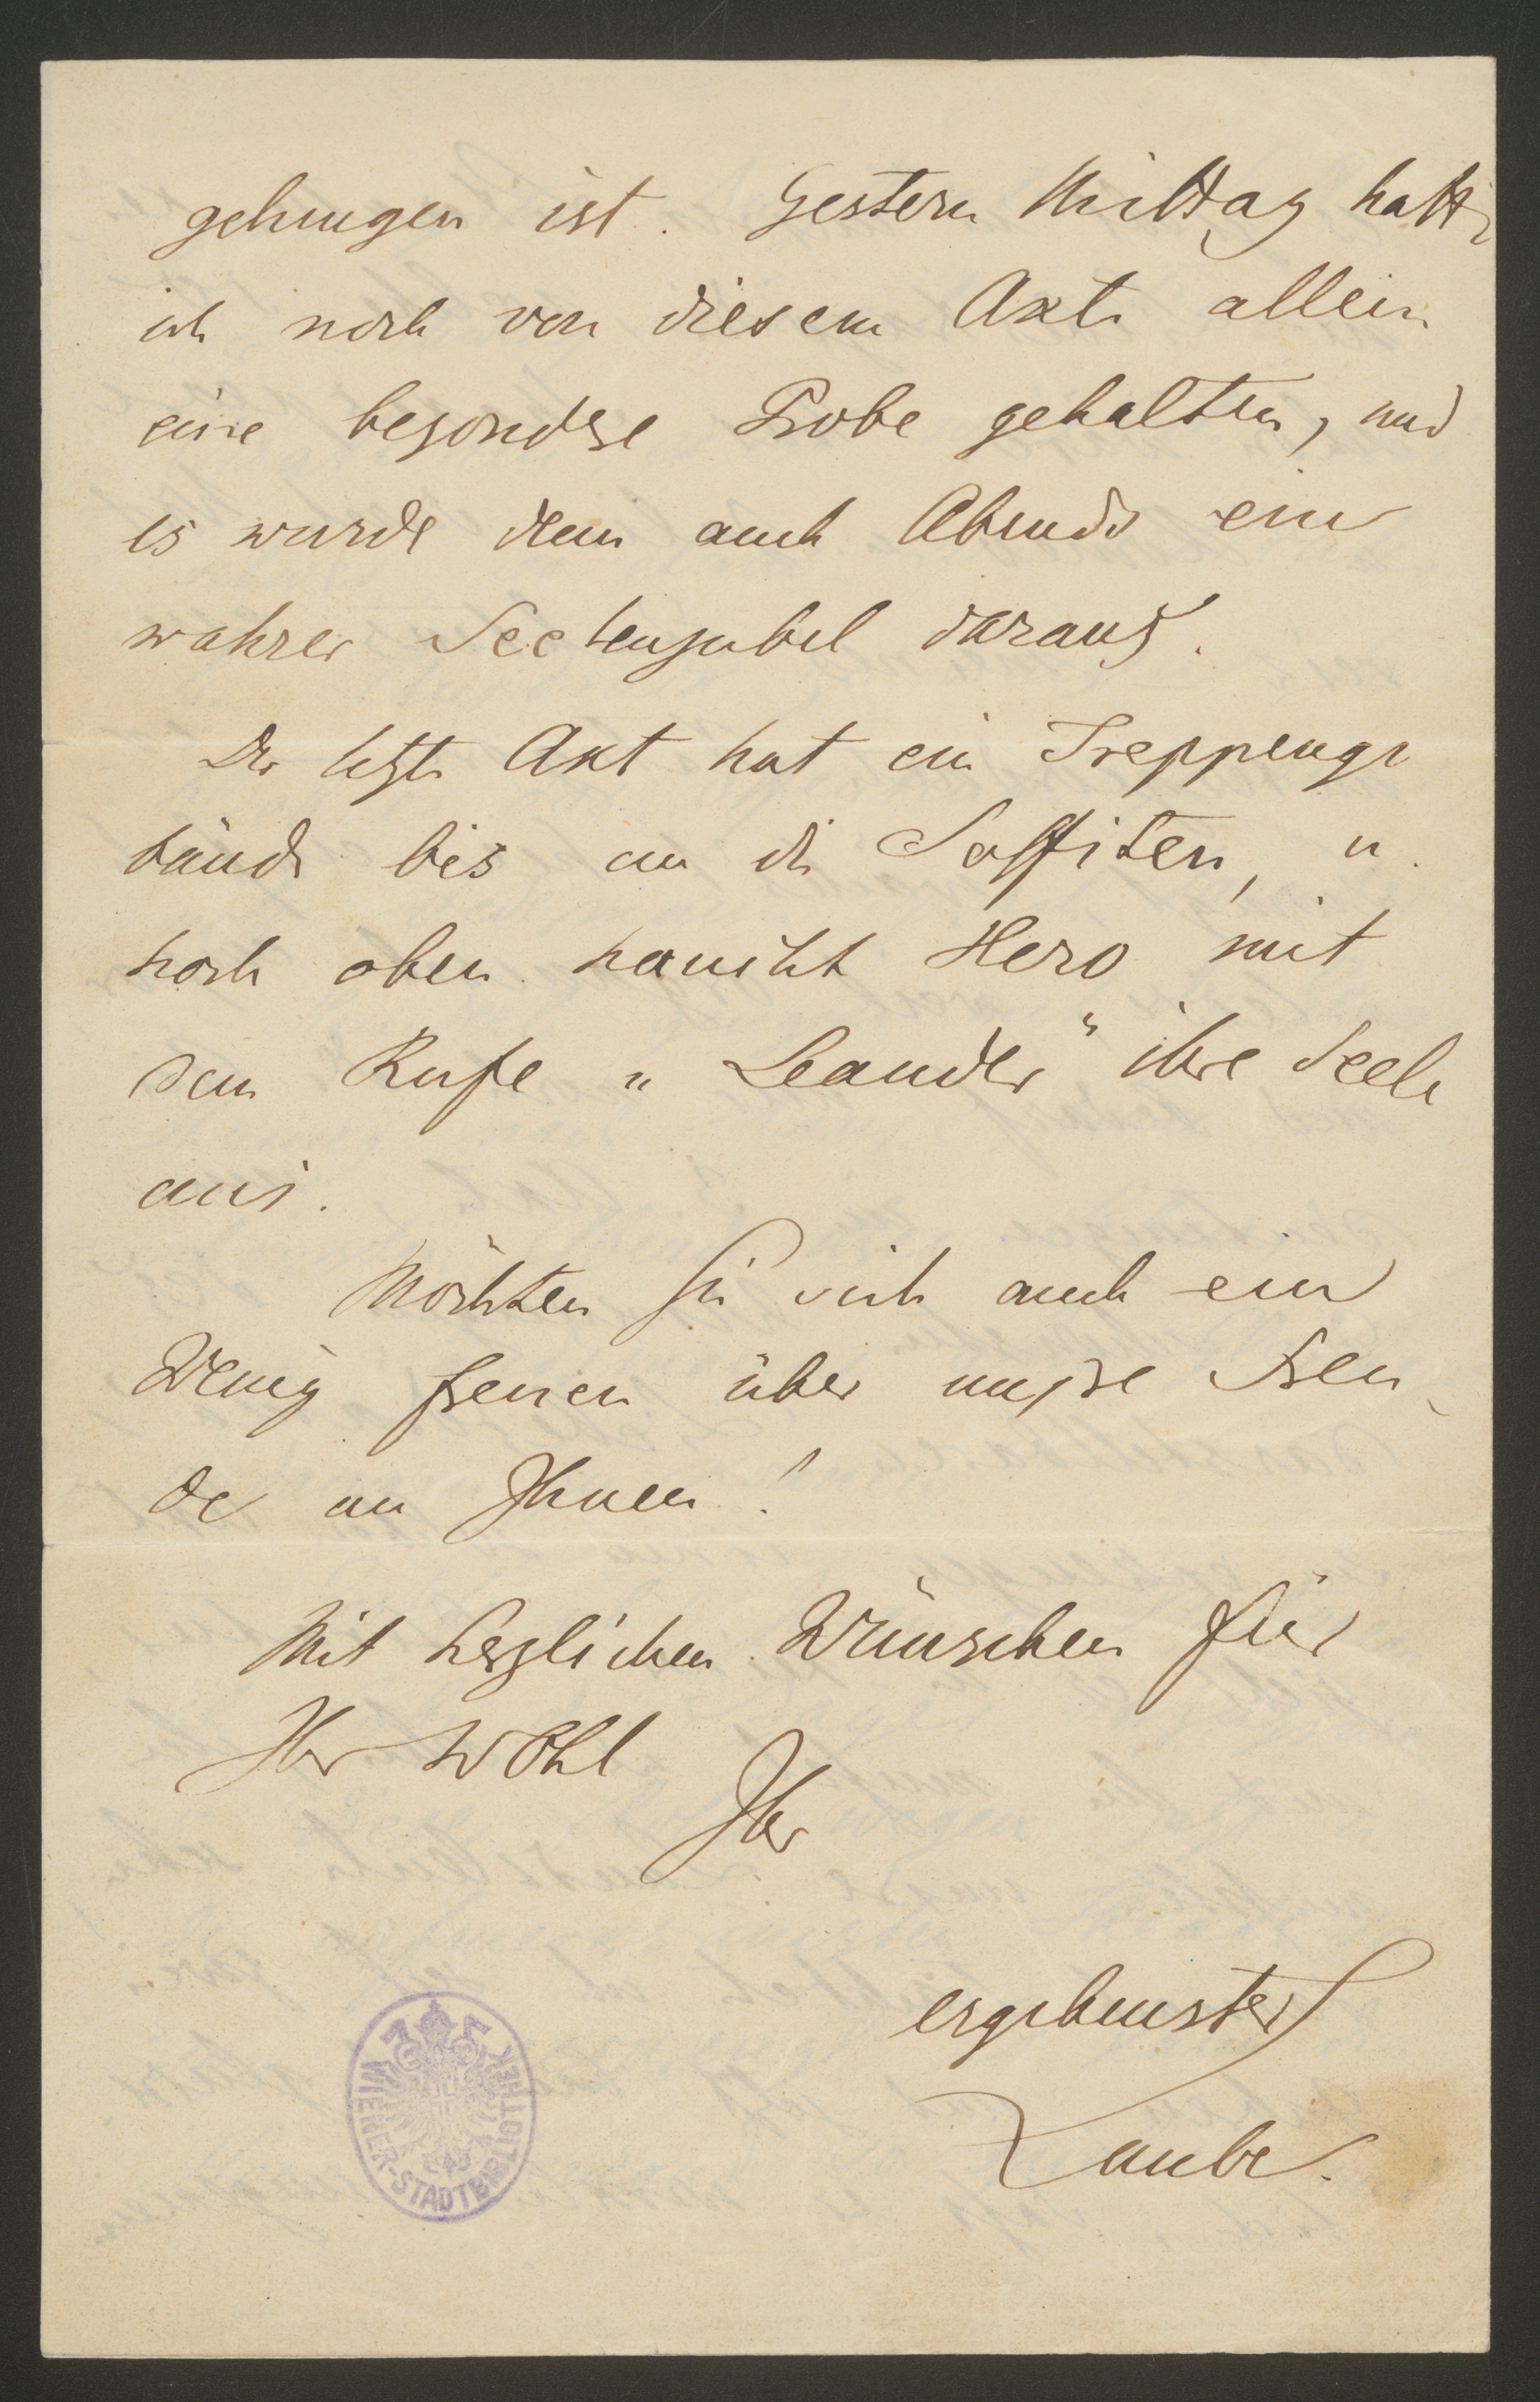 gelungen ist. Gestern Mittag hatte
ich noch von diesem Akte allein
eine besondere Probe gehalten, und
es wurde denn auch Abends ein
wahrer Seelenjubel daraus.
Der letzte Akt hat ein Treppenge
bäude bis an die Soffiten, u.
hoch oben haucht Hero mit
dem Rufe „Leander" ihre Seele
aus.
Möchten Sie sich auch ein
Wenig freuen über unsre Freu-
de an Ihnen!
Mit herzlichen Wünschen für
Ihr Wohl
Ihr
ergebenster
Laube.
WIENER-STADTBIBLIOTHEK